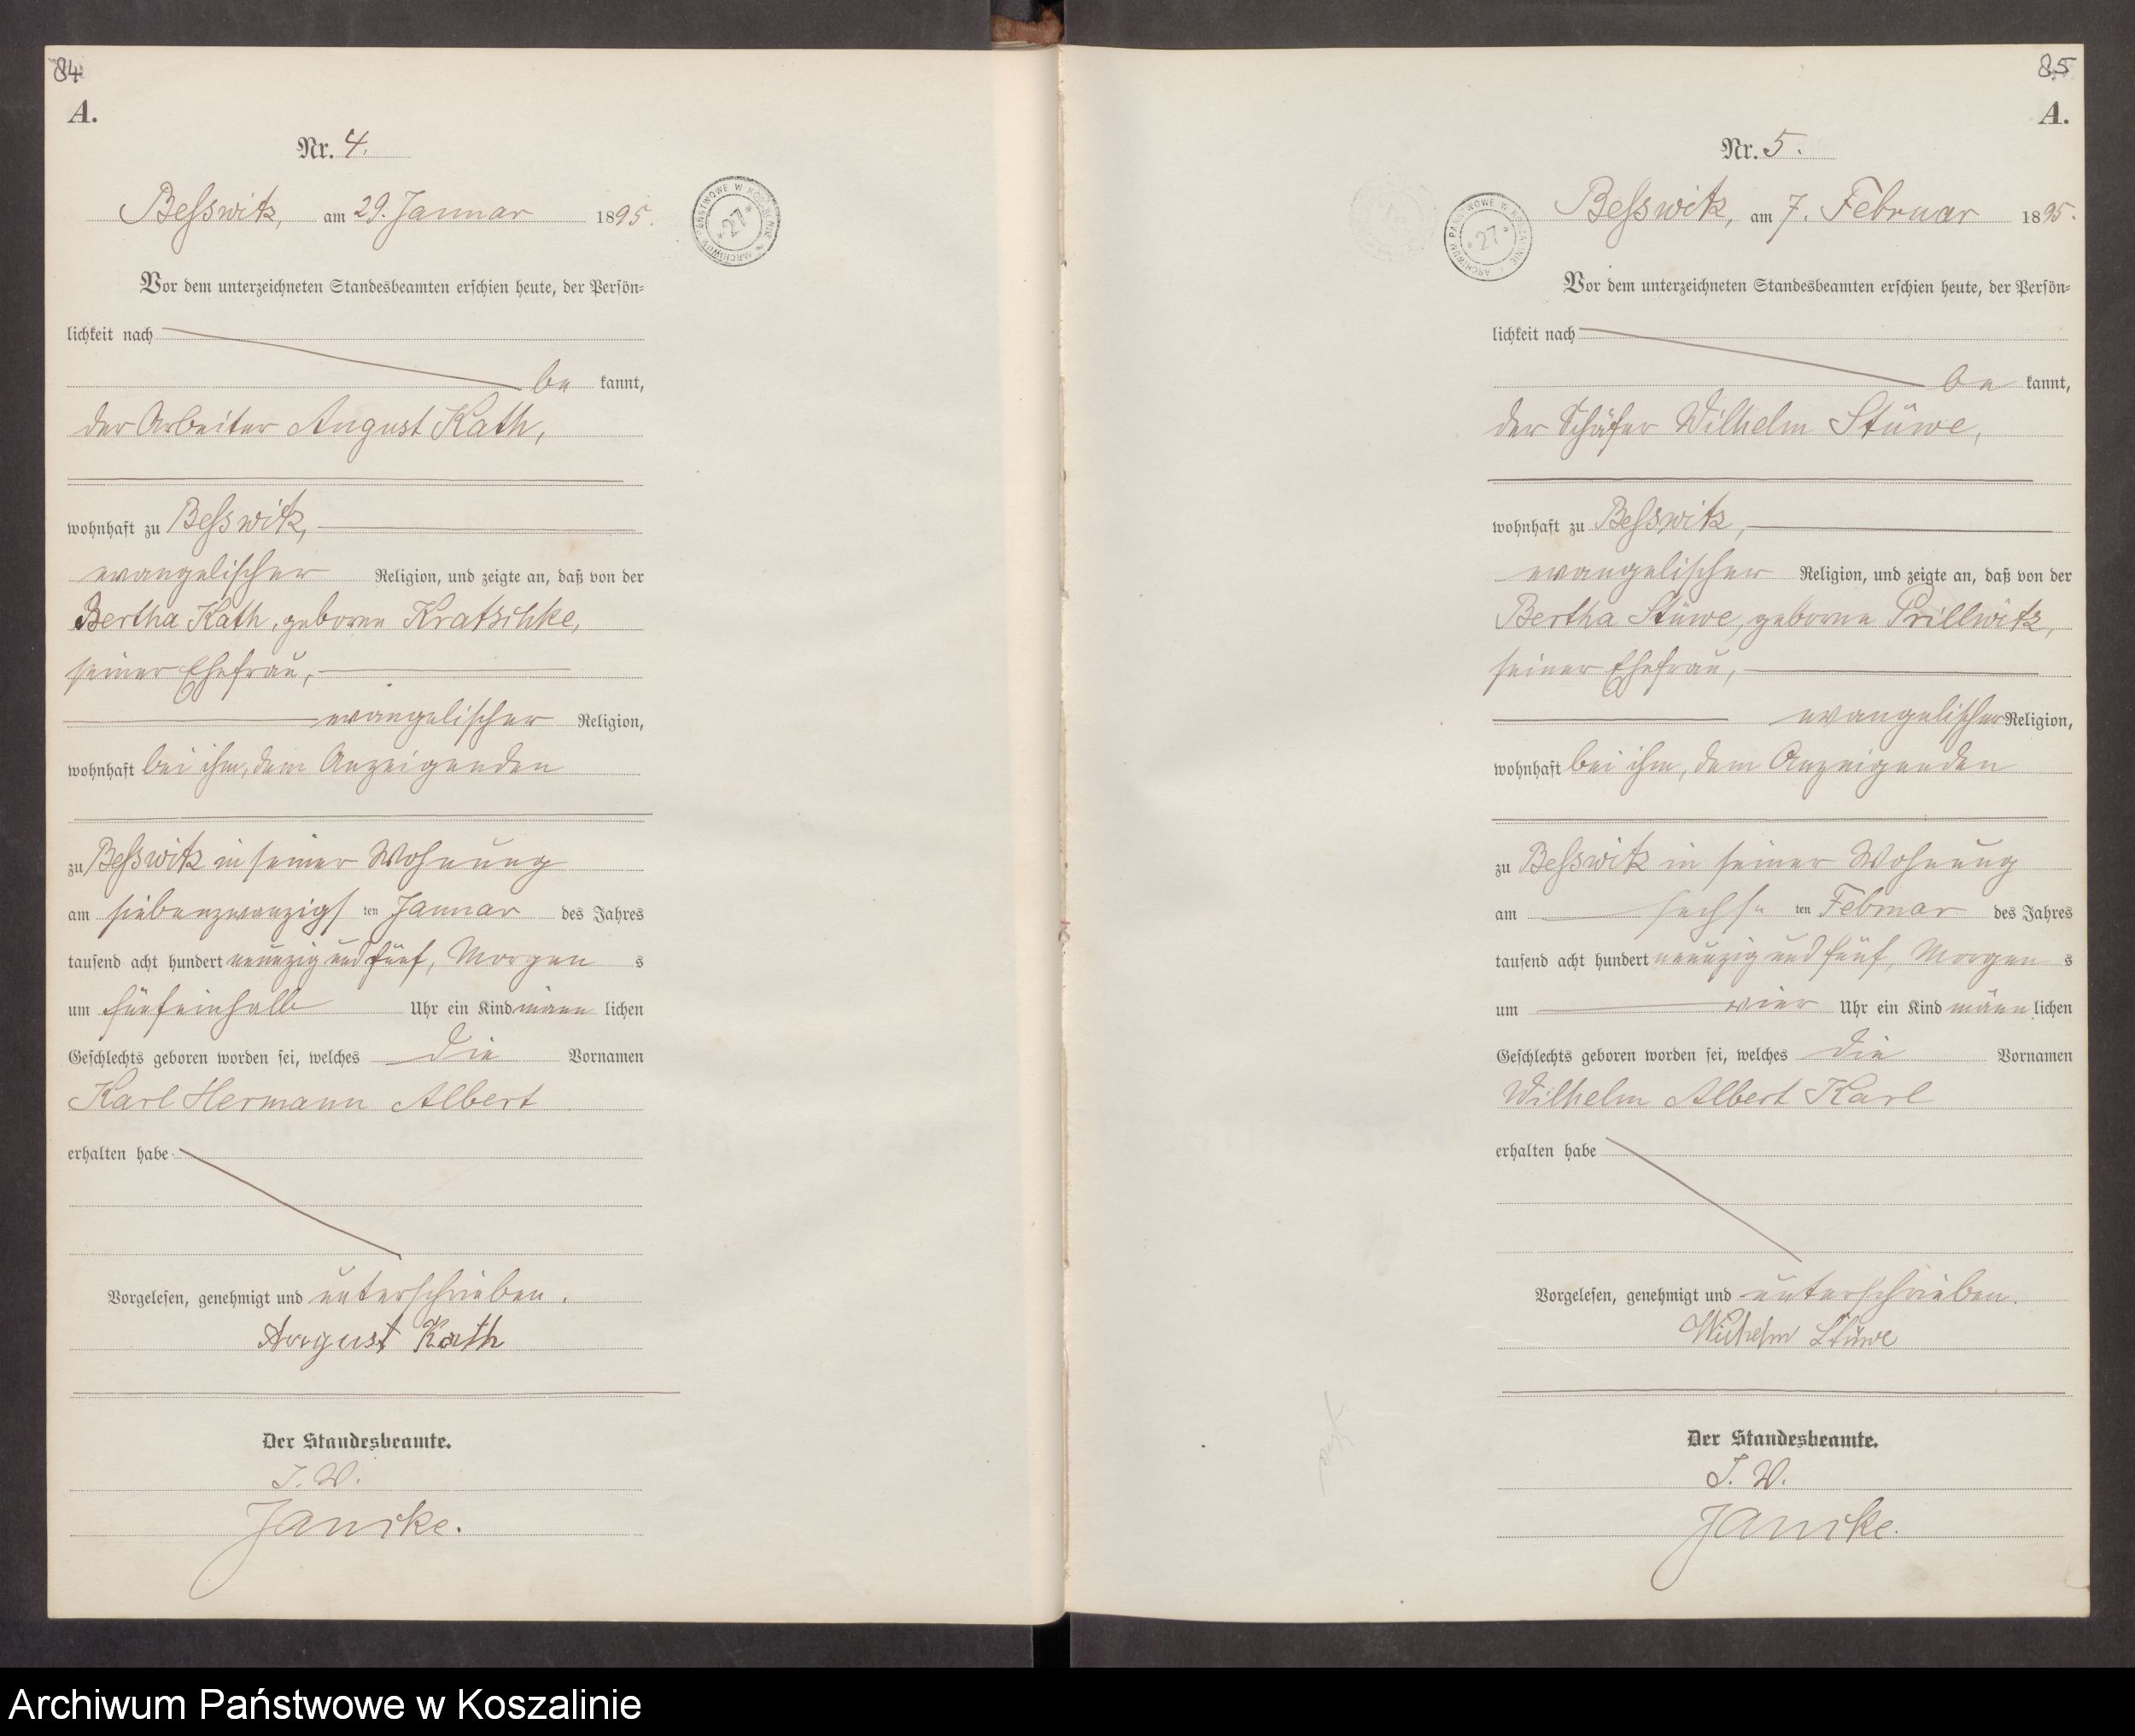 84
A.
Nr. 4.
Beſswitz, am 29. Januar 1895.
ARCHIWUM PAŃSTWOWE W KOSZALINIE
* 27 *
Vor dem unterzeichneten Standesbeamten erschien heute, der Persön-
lichkeit nach
be kannt,
der Arbeiter August Kath,
wohnhaft zu Beſswitz,
evangelischer Religion, und zeigte an, daß von der
Bertha Kath, geborne Kratschke,
seiner Ehefrau,
evangelischer Religion,
wohnhaft bei ihm, dem Anzeigenden
zu Beſswitz in seiner Wohnung
am siebenzwanzigs ten Januar des Jahres
tausend acht hundert neunzig und fünf, Morgen s
um fünfeinhalb Uhr ein Kind männ lichen
Geschlechts geboren worden sei, welches die Vornamen
Karl Hermann Albert
erhalten habe
Vorgelesen, genehmigt und unterschrieben.
August Kath
Der Standesbeamte.
J. V.
Jancke.
85
A.
Nr. 5.
Beſswitz, am 7. Februar 1895.
ARCHIWUM PAŃSTWOWE W KOSZALINIE
* 27 *
Vor dem unterzeichneten Standesbeamten erschien heute, der Persön-
lichkeit nach
be kannt,
der Schäfer Wilhelm Stüwe,
wohnhaft zu Beſswitz,
evangelischer Religion, und zeigte an, daß von der
Bertha Stüwe, geborne Prillwitz,
seiner Ehefrau,
evangelischer Religion,
wohnhaft bei ihm, dem Anzeigenden
zu Beſswitz in seiner Wohnung
am sechs ten Februar des Jahres
tausend acht hundert neunzig und fünf, Morgen s
um vier Uhr ein Kind männ lichen
Geschlechts geboren worden sei, welches die Vornamen
Wilhelm Albert Karl
erhalten habe
Vorgelesen, genehmigt und unterschrieben.
Wilhelm Stüwe
Der Standesbeamte.
J. V.
Jancke.
Archiwum Państwowe w Koszalinie